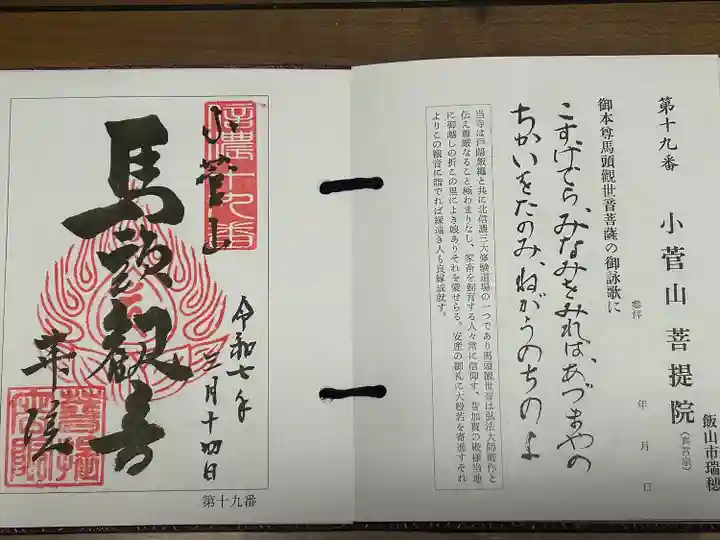 第十九番
小菅山菩提院(真言宗)
飯山市瑞穂
参拝
年 月 日
御本尊馬頭観世音菩薩の御詠歌に
こすげでら、みなみをみれば、あづまやの
ちかいをたのみ、ねがうのちのよ
当寺は戸隠飯縄と共に北信濃三大修験道場の一つであり馬頭観世音は弘法大師御作と
伝え尊厳なること極わまりなし、家畜を飼育する人々常に信仰す、昔加賀の殿様当地
に御越しの折この里によき娘ありそれを愛せらる。安産の御礼に大般若を寄進すそれ
よりこの観音に詣でれば縁遠き人も良縁成就す。
信濃十九番
小菅山
馬頭観音
令和七年
三月十四日
第十九番